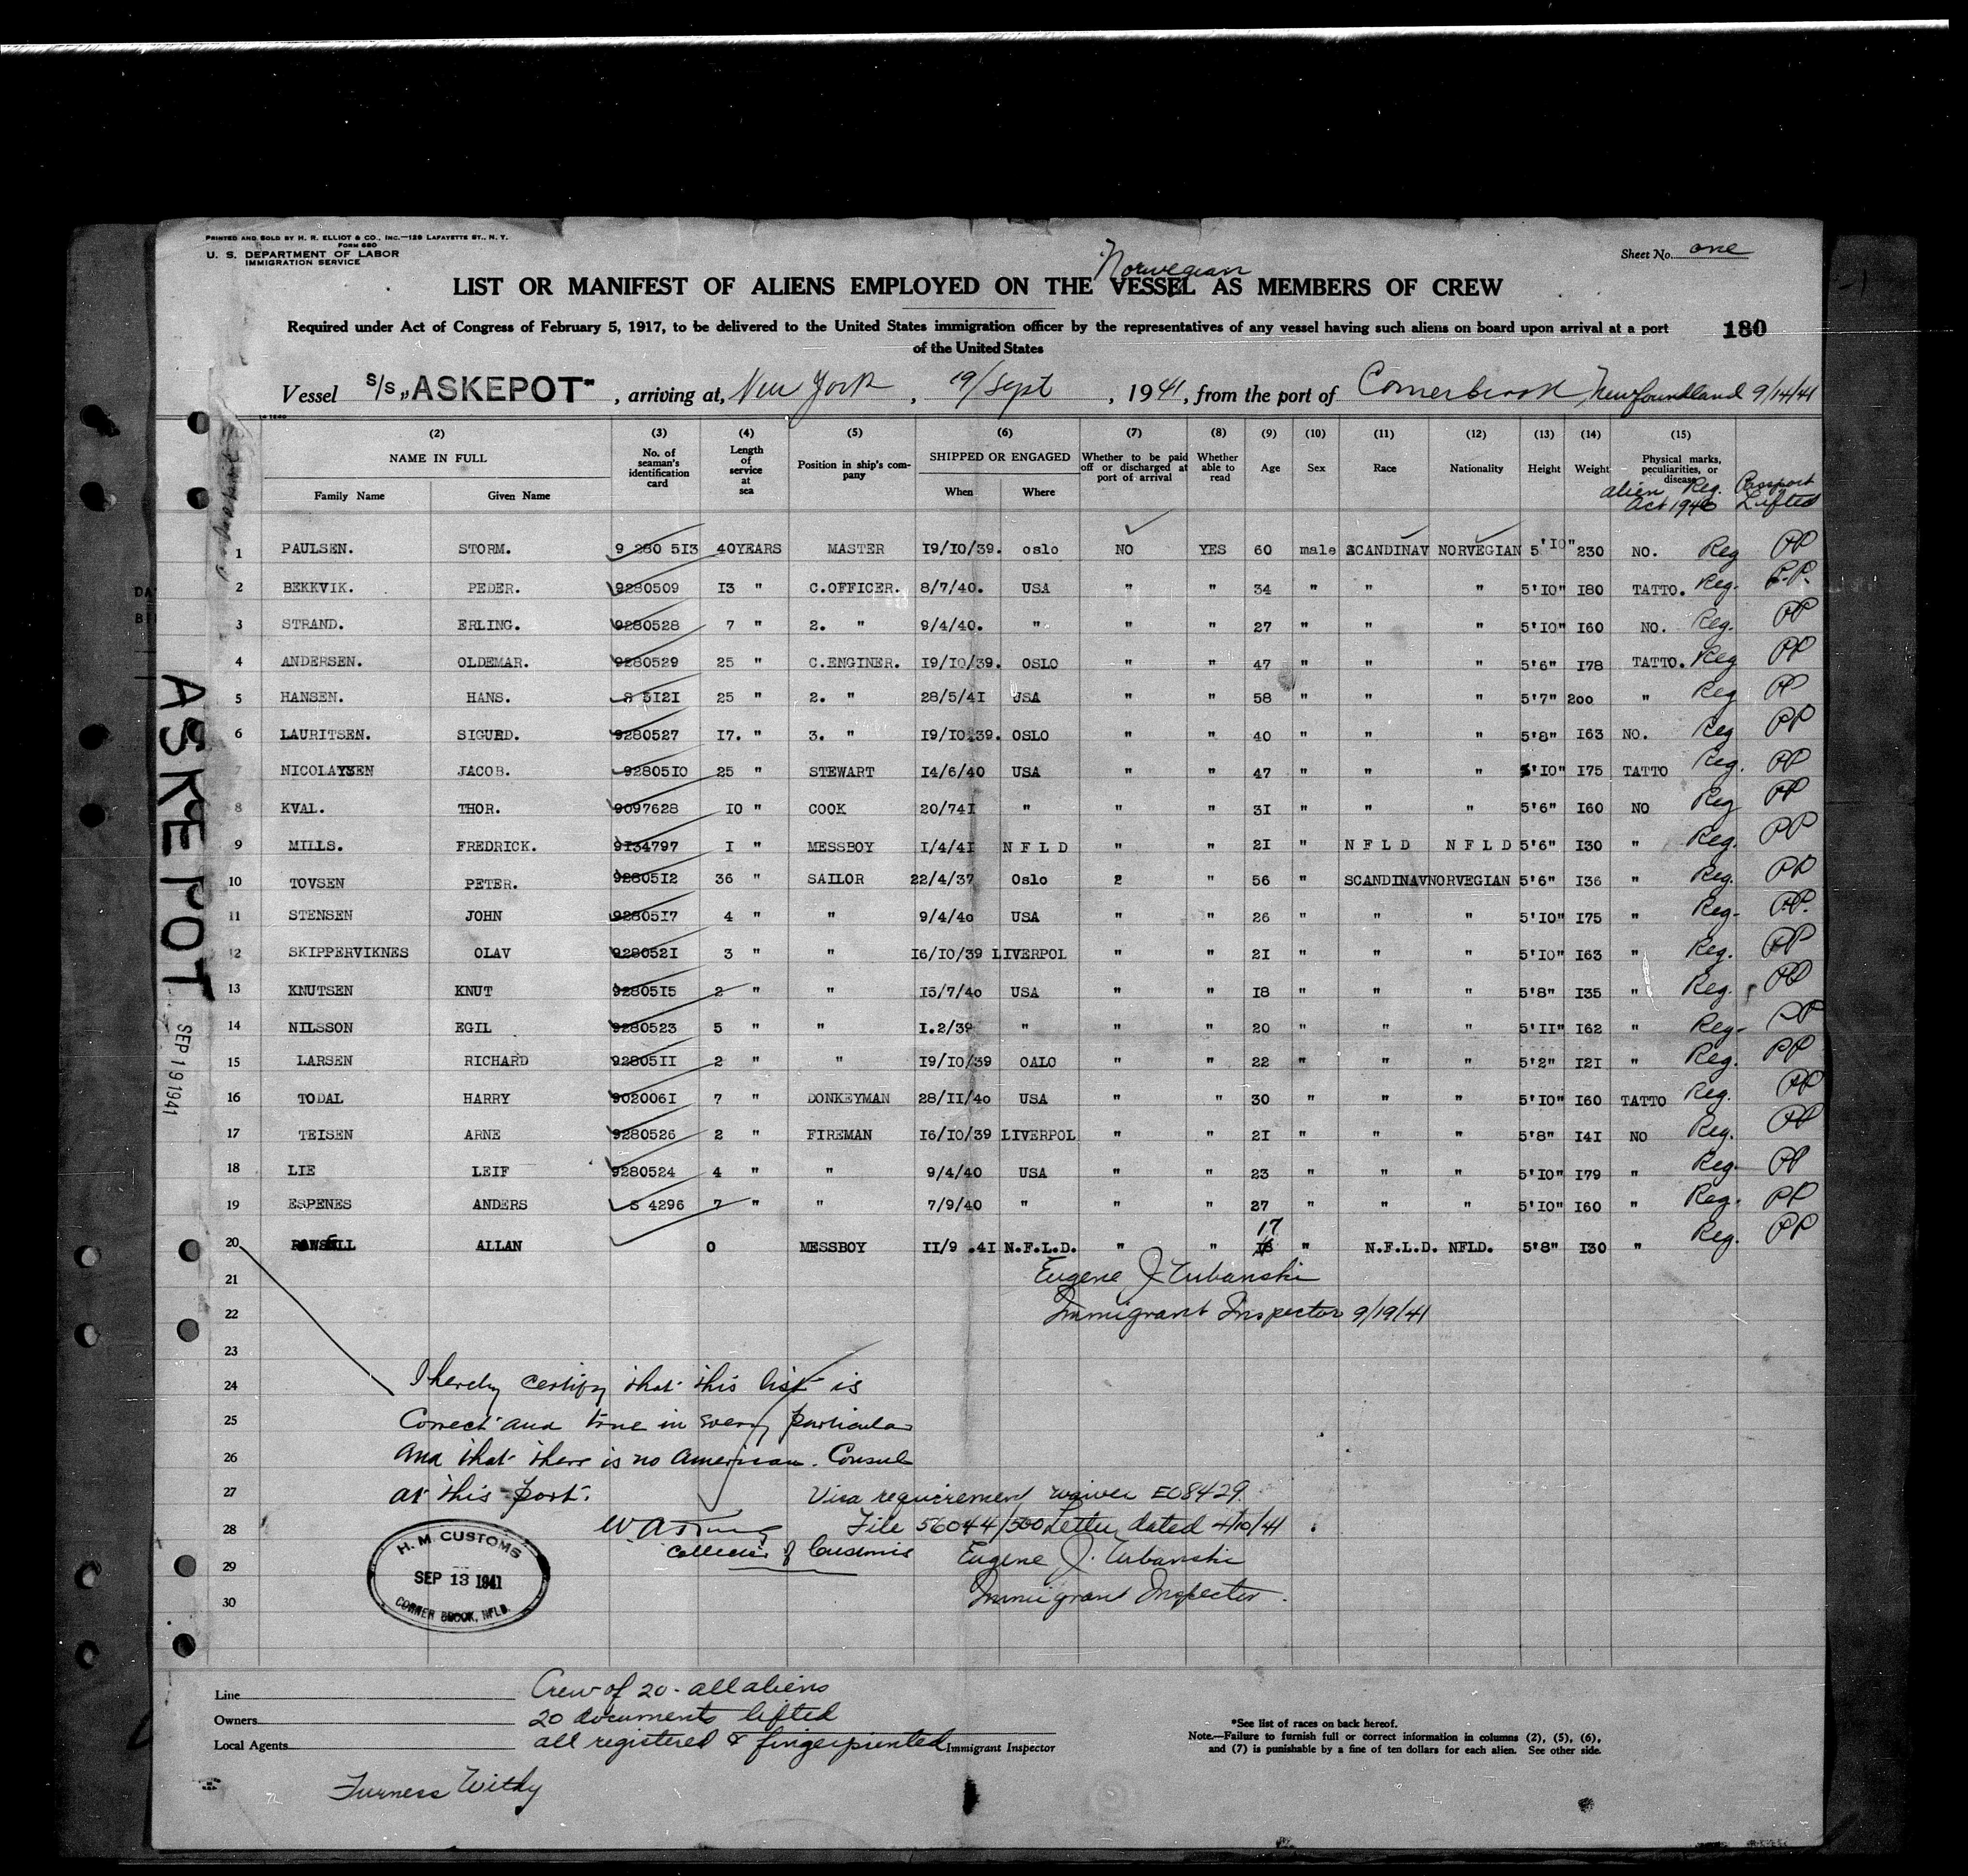 PRINTED AND SOLD BY H. R. ELLIOT & CO., INC.—128 LAFAYETTE ST., N. Y.
FORM 680
U. S. DEPARTMENT OF LABOR
IMMIGRATION SERVICE
Sheet No. one
Norwegian
LIST OR MANIFEST OF ALIENS EMPLOYED ON THE VESSEL AS MEMBERS OF CREW
Required under Act of Congress of February 5, 1917, to be delivered to the United States immigration officer by the representatives of any vessel having such aliens on board upon arrival at a port
of the United States
180
Vessel S/S „ASKEPOT" , arriving at, New York , 19/Sept , 1941, from the port of Cornerbrook, Newfoundland 9/14/41
(2) (3) (4) (5) (6) (7) (8) (9) (10) (11) (12) (13) (14) (15)
NAME IN FULL No. of seaman's identification card Length of service at sea Position in ship's company SHIPPED OR ENGAGED Whether to be paid off or discharged at port of arrival Whether able to read Age Sex Race Nationality Height Weight Physical marks, peculiarities, or disease
Family Name Given Name When Where alien Reg. Act 1940 Passport Lifted
1 PAULSEN. STORM. 9 280 5I3 40YEARS MASTER I9/I0/39. oslo NO YES 60 male SCANDINAV NORVEGIAN 5'IO" 230 NO. Reg PP
2 BEKKVIK. PEDER. 9280509 I3 " C.OFFICER. 8/7/40. USA " " 34 " " " 5'IO" I80 TATTO. Reg. P.P.
3 STRAND. ERLING. 9280528 7 " 2. " 9/4/40. " " " 27 " " " 5'IO" I60 NO. Reg. PP
4 ANDERSEN. OLDEMAR. 9280529 25 " C.ENGINER. I9/IO/39. OSLO " " 47 " " " 5'6" I78 TATTO. Reg PP
5 HANSEN. HANS. S 5I2I 25 " 2. " 28/5/4I USA " " 58 " " " 5'7" 200 " Reg PP
6 LAURITSEN. SIGURD. 9280527 I7. " 3. " I9/IO/39. OSLO " " 40 " " " 5'8" I63 NO. Reg PP
7 NICOLAYSEN JACOB. 92805IO 25 " STEWART I4/6/40 USA " " 47 " " " 5'IO" I75 TATTO Reg. PP
8 KVAL. THOR. 9097628 IO " COOK 20/74I " " " 3I " " " 5'6" I60 NO Reg PP
9 MILLS. FREDRICK. 9I34797 I " MESSBOY I/4/4I N F L D " " 2I " N F L D N F L D 5'6" I30 " Reg. PP
10 TOVSEN PETER. 92805I2 36 " SAILOR 22/4/37 Oslo 2 " 56 " SCANDINAV NORVEGIAN 5'6" I36 " Reg. PP
11 STENSEN JOHN 92805I7 4 " " 9/4/40 USA " " 26 " " " 5'IO" I75 " Reg- P.P.
12 SKIPPERVIKNES OLAV 928052I 3 " " I6/IO/39 LIVERPOL " " 2I " " " 5'IO" I63 " Reg. PP
13 KNUTSEN KNUT 92805I5 2 " " I5/7/40 USA " " I8 " " " 5'8" I35 " Reg. PP
14 NILSSON EGIL 9280523 5 " " I.2/39 " " " 20 " " " 5'II" I62 " Reg- PP
15 LARSEN RICHARD 92805II 2 " " I9/IO/39 OALO " " 22 " " " 5'2" I2I " Reg. PP
16 TODAL HARRY 902006I 7 " DONKEYMAN 28/II/40 USA " " 30 " " " 5'IO" I60 TATTO Reg. PP
17 TEISEN ARNE 9280526 2 " FIREMAN I6/IO/39 LIVERPOL " " 2I " " " 5'8" I4I NO Reg. PP
18 LIE LEIF 9280524 4 " " 9/4/40 USA " " 23 " " " 5'IO" I79 " Reg- PP
19 ESPENES ANDERS S 4296 7 " " 7/9/40 " " " 27 " " " 5'IO" I60 " Reg. PP
20 ALLAN 0 MESSBOY II/9 .4I N.F.L.D. " " 17 I8 " N.F.L.D. NFLD. 5'8" I30 " Reg. PP
21 Eugene J. Urbanski
22 Immigrant Inspector 9/19/41
23
24 I hereby certify that this list is
25 Correct and true in every particular
26 and that there is no American Consul
27 at this port. Visa requirement waiver EO8429.
28 File 56044/500 Letter dated 4/10/41
29 Collector of Customs Eugene J. Urbanski
30 Immigrant Inspector.
H. M. CUSTOMS
SEP 13 1941
CORNER BROOK, NFLD.
ASKEPOT
SEP 19 1941
Line Crew of 20 - all aliens
Owners 20 documents lifted
Local Agents all registered & fingerprinted Immigrant Inspector
Furness Withy
*See list of races on back hereof.
Note.—Failure to furnish full or correct information in columns (2), (5), (6),
and (7) is punishable by a fine of ten dollars for each alien. See other side.